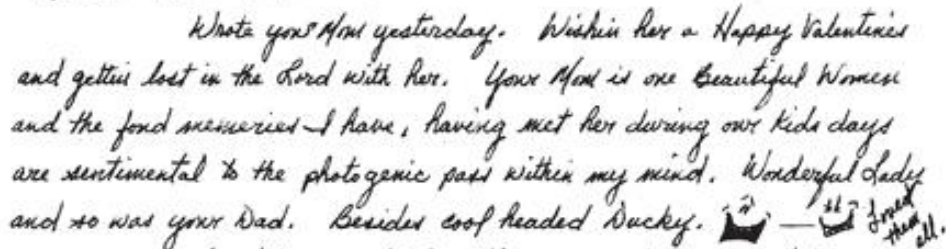 Wrote your Mom yesterday. Wishin her a Happy Valentines
and gettin lost in the Lord with her. Your Mom is one Beautiful Women
and the fond memeries I have, having met her during our Kids days
are sentimental to the photogenic pass within my mind. Wonderful Lady
and so was your Dad. Besides cool headed Ducky. — Loved them all.